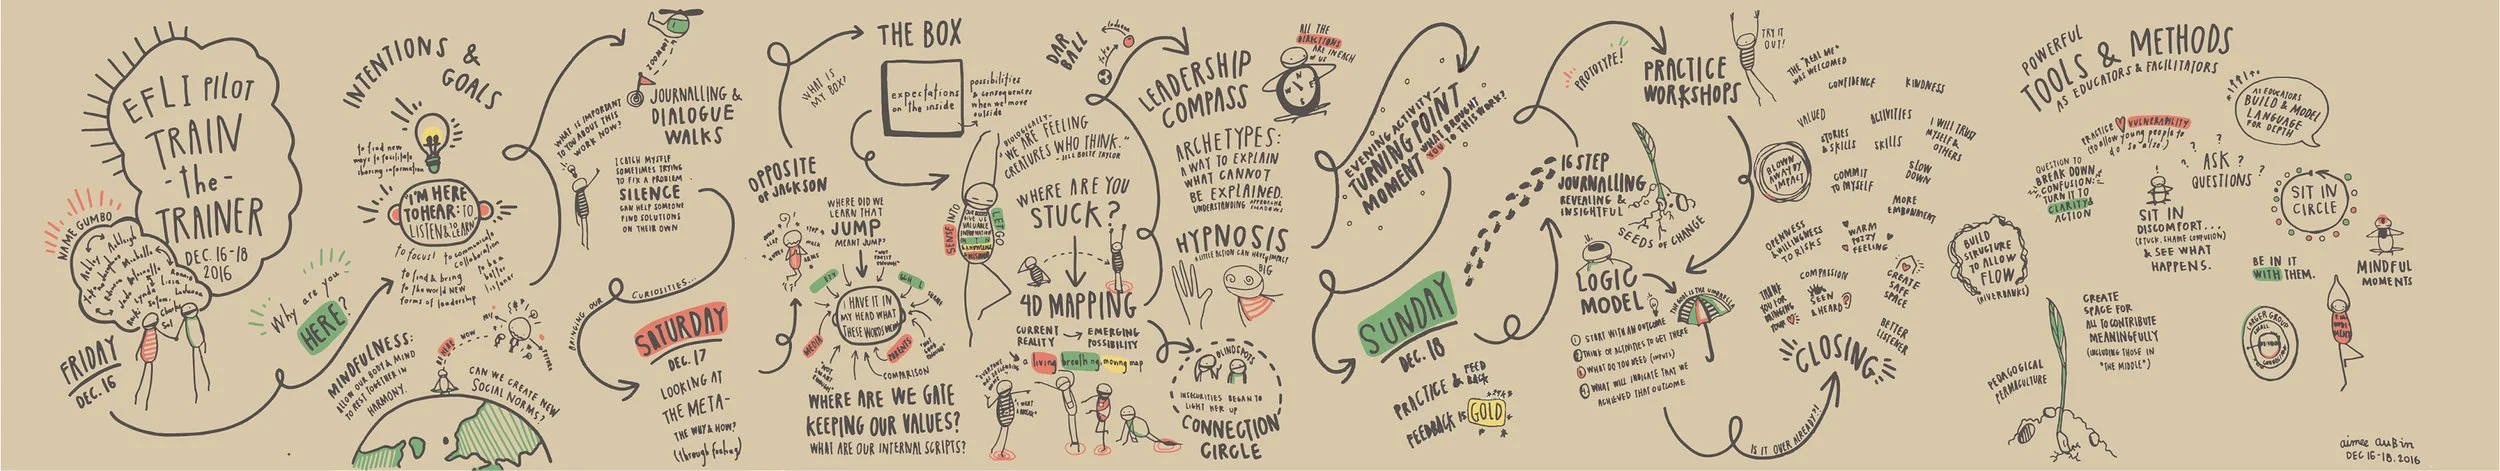 EFLI PILOT
TRAIN
-the-
TRAINER
DEC. 16-18
2016
NAME GUMBO
FRIDAY
DEC. 16
Why are you
HERE?
INTENTIONS &
GOALS
to find new
ways to facilitate
sharing information
I'M HERE
TO HEAR: TO
LISTEN & TO LEARN
to focus!
to communicate
collaboration
to find & bring
to the world new
forms of leadership
to be a
better
listener
MINDFULNESS:
ALLOW OUR BODY & MIND
TO REST TOGETHER IN
HARMONY.
BE HERE
NOW
FUTURE
CAN WE CREATE NEW
SOCIAL NORMS?
ZOOMOUT
JOURNALLING &
DIALOGUE
WALKS
WHAT IS IMPORTANT
TO YOU ABOUT THIS
WORK NOW?
I CATCH MYSELF
SOMETIMES TRYING
TO FIX A PROBLEM.
SILENCE
CAN HELP SOMEONE
FIND SOLUTIONS
ON THEIR OWN
BRINGING OUR
CURIOSITIES...
SATURDAY
DEC. 17
LOOKING AT
THE META-
THE WHY & HOW?
(through feeling)
OPPOSITE
OF JACKSON
WHAT IS
MY BOX?
THE BOX
expectations
on the inside
possibilities
& consequences
when we move
outside
WHERE DID WE
LEARN THAT
JUMP
MEANT JUMP?
I HAVE IT IN
MY HEAD WHAT
THESE WORDS MEAN
MEDIA
PARENTS
COMPARISON
WHERE ARE WE GATE
KEEPING OUR VALUES?
WHAT ARE OUR INTERNAL SCRIPTS?
"BIOLOGICALLY-
WE ARE FEELING
CREATURES WHO THINK."
- JILL BOLTE TAYLOR
SENSE INTO
LET GO
OUR BODIES
GIVE US
VALUABLE
INFORMATION
WHERE ARE YOU
STUCK?
4D MAPPING
CURRENT
REALITY
EMERGING
POSSIBILITY
a living, breathing, moving map
DAR
BALL
LEADERSHIP
COMPASS
ALL THE
DIRECTIONS
ARE IN EACH
OF US
N
E
S
W
ARCHETYPES:
A WAY TO EXPLAIN
WHAT CANNOT
BE EXPLAINED.
UNDERSTANDING APPROACHES
& SHADOWS
HYPNOSIS
A LITTLE ACTION CAN HAVE BIG
IMPACT
BLINDSPOTS
INSECURITIES BEGAN TO
LIGHT HER UP
CONNECTION
CIRCLE
EVENING ACTIVITY-
TURNING POINT
MOMENT
WHAT BROUGHT
YOU TO THIS WORK?
SUNDAY
DEC. 18
PRACTICE & FEED
BACK
FEEDBACK IS GOLD
16 STEP
JOURNALLING
REVEALING &
INSIGHTFUL
SEEDS OF CHANGE
LOGIC
MODEL
THE GOAL IS THE UMBRELLA
1 START WITH AN OUTCOME
2 THINK OF ACTIVITIES TO GET THERE
3 WHAT DO YOU NEED (INPUTS)
4 WHAT WILL INDICATE THAT WE
ACHIEVED THAT OUTCOME
PROTOTYPE!
PRACTICE
WORKSHOPS
TRY IT
OUT!
IS IT OVER ALREADY?!
THE "REAL ME"
WAS WELCOMED
CONFIDENCE
KINDNESS
VALUED
ACTIVITIES
STORIES
& SKILLS
SKILLS
I WILL TRUST
MYSELF &
OTHERS
BLOWN
AWAY BY
IMPACT
COMMIT
TO MYSELF
SLOW
DOWN
MORE
EMBODIMENT
OPENNESS
& WILLINGNESS
TO RISKS
WARM
FUZZY
FEELING
COMPASSION
CREATE
SAFE
SPACE
THANK
YOU FOR
BRINGING
YOUR
SEEN
& HEARD
BETTER
LISTENER
CLOSING
POWERFUL
TOOLS & METHODS
AS EDUCATORS & FACILITATORS
AS EDUCATORS
BUILD & MODEL
LANGUAGE
FOR DEPTH
PRACTICE VULNERABILITY
(to allow young people to
do so also)
QUESTION TO
BREAK DOWN
CONFUSION:
TURN IT TO
CLARITY &
ACTION
ASK
QUESTIONS
SIT IN
CIRCLE
BUILD
STRUCTURE
TO ALLOW
FLOW
(RIVERBANKS)
SIT IN
DISCOMFORT...
(STUCK, SHAME, CONFUSION)
& SEE WHAT
HAPPENS.
BE IN IT
WITH THEM.
MINDFUL
MOMENTS
PEDAGOGICAL
PERMACULTURE
CREATE
SPACE FOR
ALL TO CONTRIBUTE
MEANINGFULLY
(INCLUDING THOSE IN
"THE MIDDLE")
LARGER GROUP
SMALL
aimee aubin
DEC 16-18. 2016